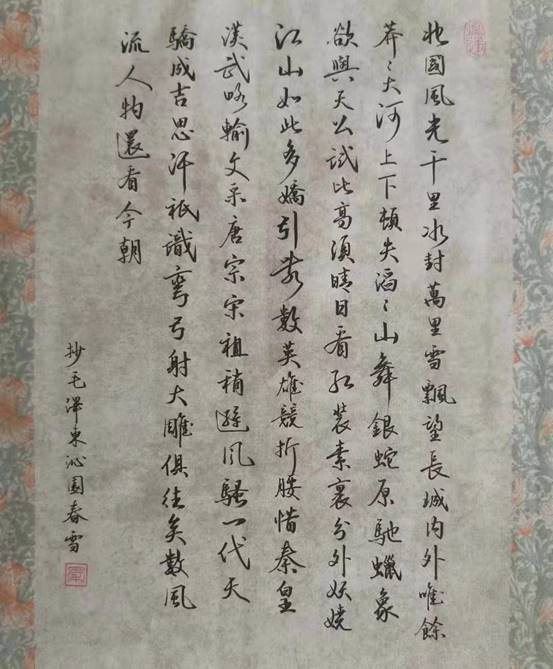 北國風光千里冰封萬里雪飄望長城內外唯餘
莽〻大河上下頓失滔〻山舞銀蛇原馳蠟象
欲與天公試比高須晴日看紅裝素裹分外妖嬈
江山如此多嬌引無數英雄競折腰惜秦皇
漢武略輸文采唐宗宋祖稍遜風騷一代天
驕成吉思汗祇識彎弓射大雕俱往矣數風
流人物還看今朝
抄毛澤東沁園春雪